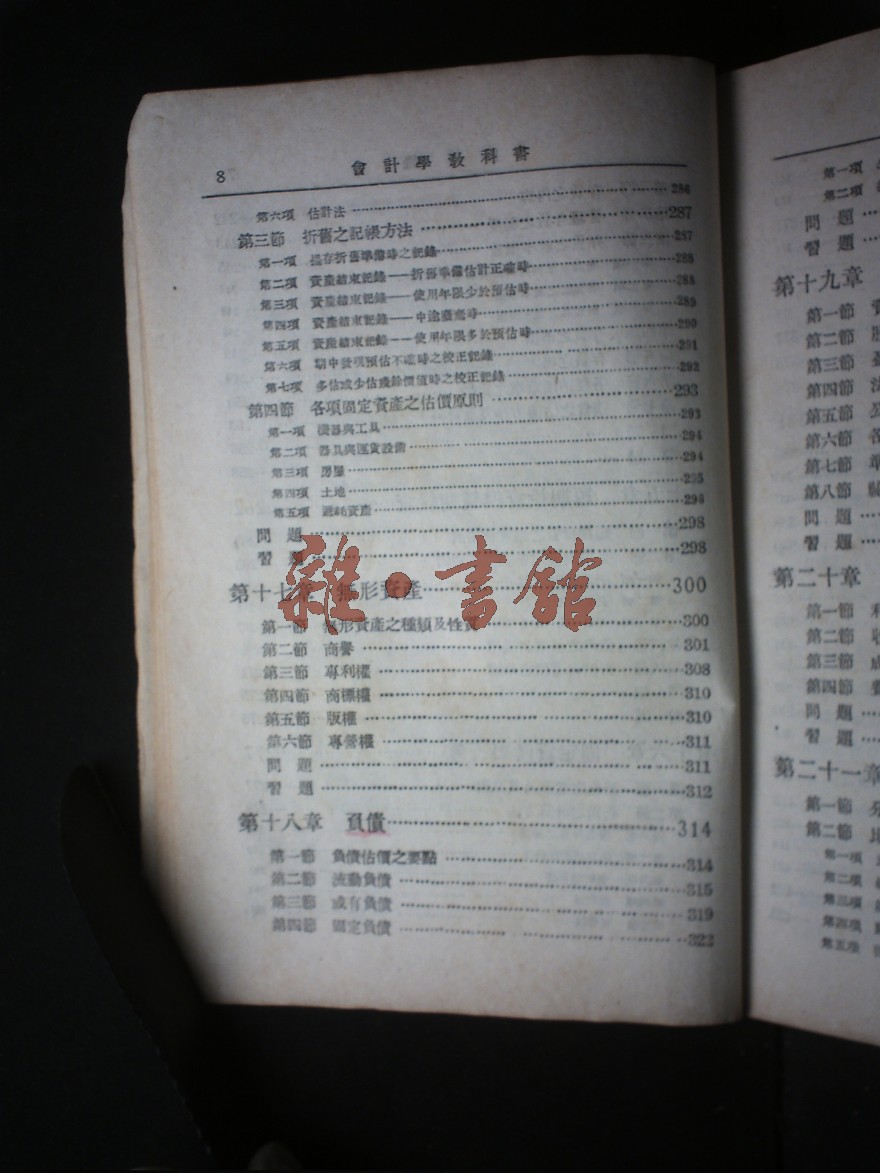 8 會計學教科書
第六項 估計法 286
第三節 折舊之記帳方法 287
第一項 提存折舊準備時之記錄 287
第二項 資產結束記錄——折舊準備估計正確時 288
第三項 資產結束記錄——使用年限少於預估時 288
第四項 資產結束記錄——中途變賣時 289
第五項 資產結束記錄——使用年限多於預估時 290
第六項 期中發現預估不確時之校正記錄 291
第七項 多估或少估殘餘價值時之校正記錄 292
第四節 各項固定資產之估價原則 293
第一項 機器與工具 293
第二項 器具與運貨設備 294
第三項 房屋 294
第四項 土地 295
第五項 遞耗資產 296
問題 298
習題 298
第十七章 無形資產 300
第一節 無形資產之種類及性質 300
第二節 商譽 301
第三節 專利權 308
第四節 商標權 310
第五節 版權 310
第六節 專營權 311
問題 311
習題 312
第十八章 負債 314
第一節 負債估價之要點 314
第二節 流動負債 315
第三節 或有負債 319
第四節 固定負債 322
雜·書館
第一項
第二項
問題
習題
第十九章
第一節
第二節
第三節
第四節
第五節
第六節
第七節
第八節
問題
習題
第二十章
第一節
第二節
第三節
第四節
問題
習題
第二十一章
第一節
第二節
第一項
第二項
第三項
第四項
第五項